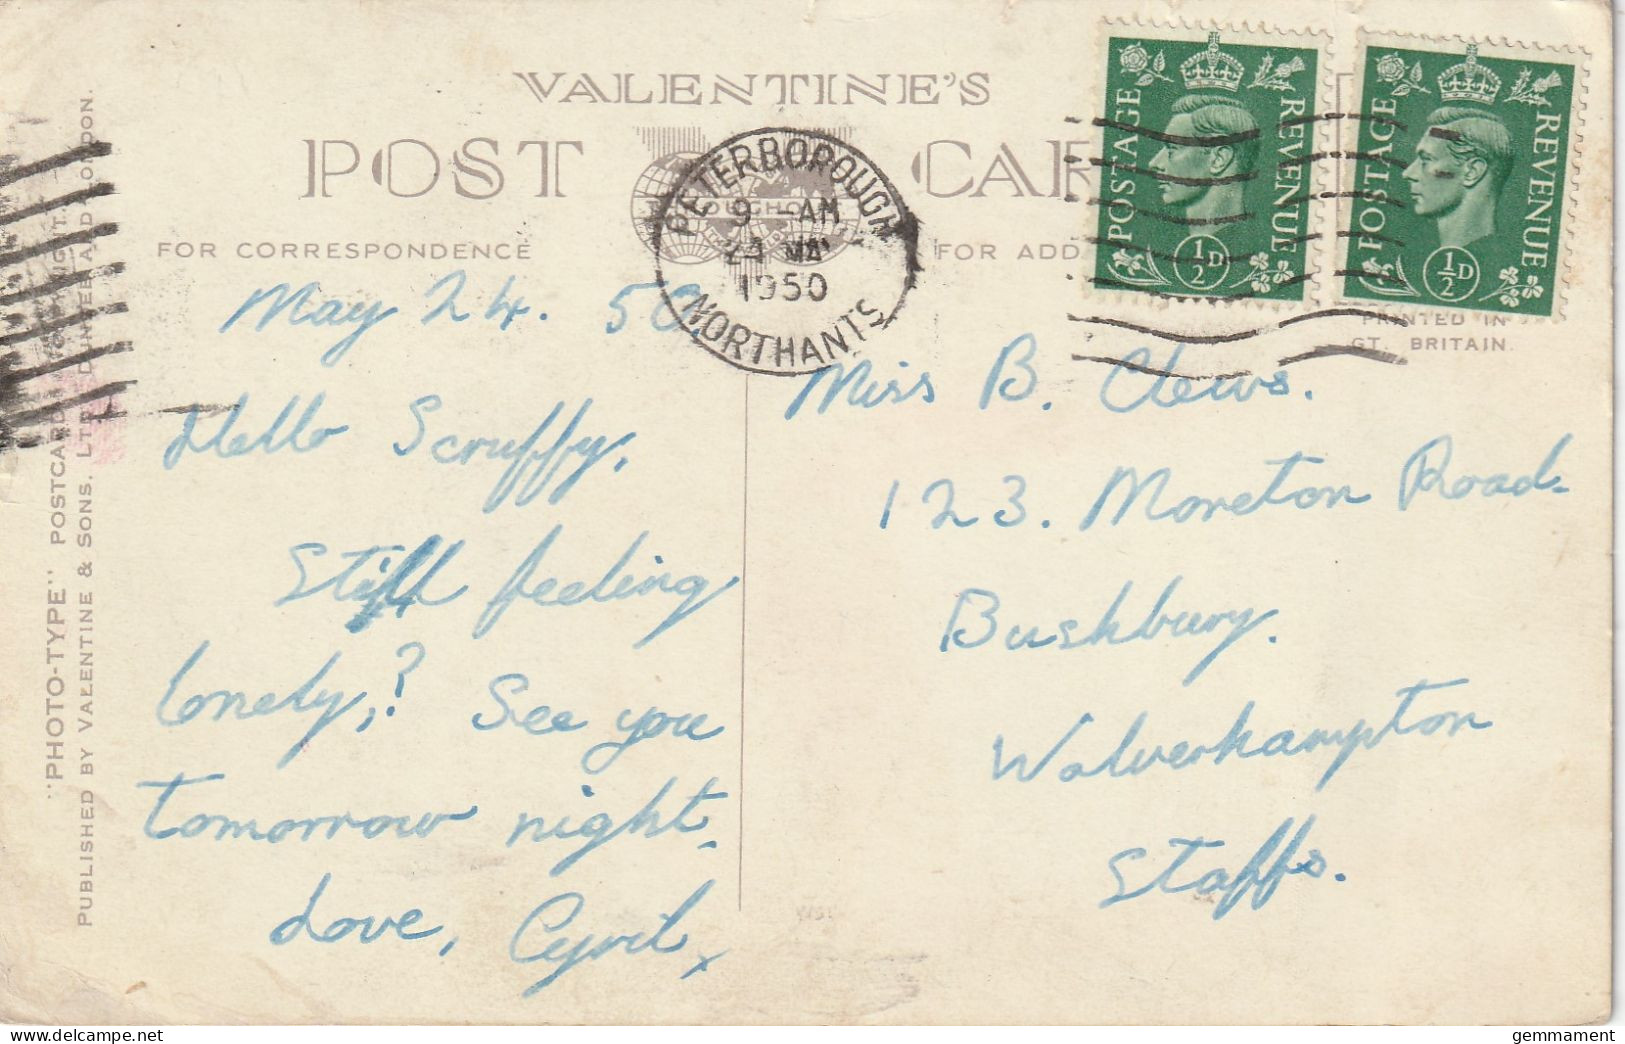 VALENTINE'S
POST
FOR CORRESPONDENCE
FOR
PETERBOROUGH
9 - AM
1950
NORTHANTS
POSTAGE REVENUE
½D
POSTAGE REVENUE
½D
PRINTED IN
GT. BRITAIN.
"PHOTO-TYPE" POSTCARD
PUBLISHED BY VALENTINE & SONS. LTD. DUNDEE AND LONDON.
May 24. 50
Hello Scruffy,
Still feeling
lonely,? See you
tomorrow night.
Love, Cyril x
Miss B. Clews.
123. Moreton Road.
Bushbury.
Wolverhampton
Staffs.
delcampe.net
gemmament